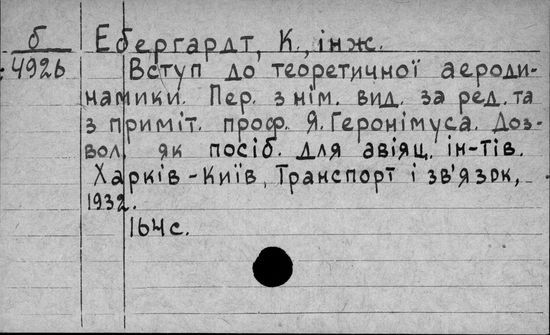 б
4926
Ебергардт, К., інж.
Вступ до теоретичної аероди-
намики. Пер. з нім. вид. за ред. та
з приміт. проф. Я. Геронімуса. Доз-
вол. як посіб. для авіяц. ін-тів.
Харків-Київ, Транспорт і зв'язок,
1932.
164с.